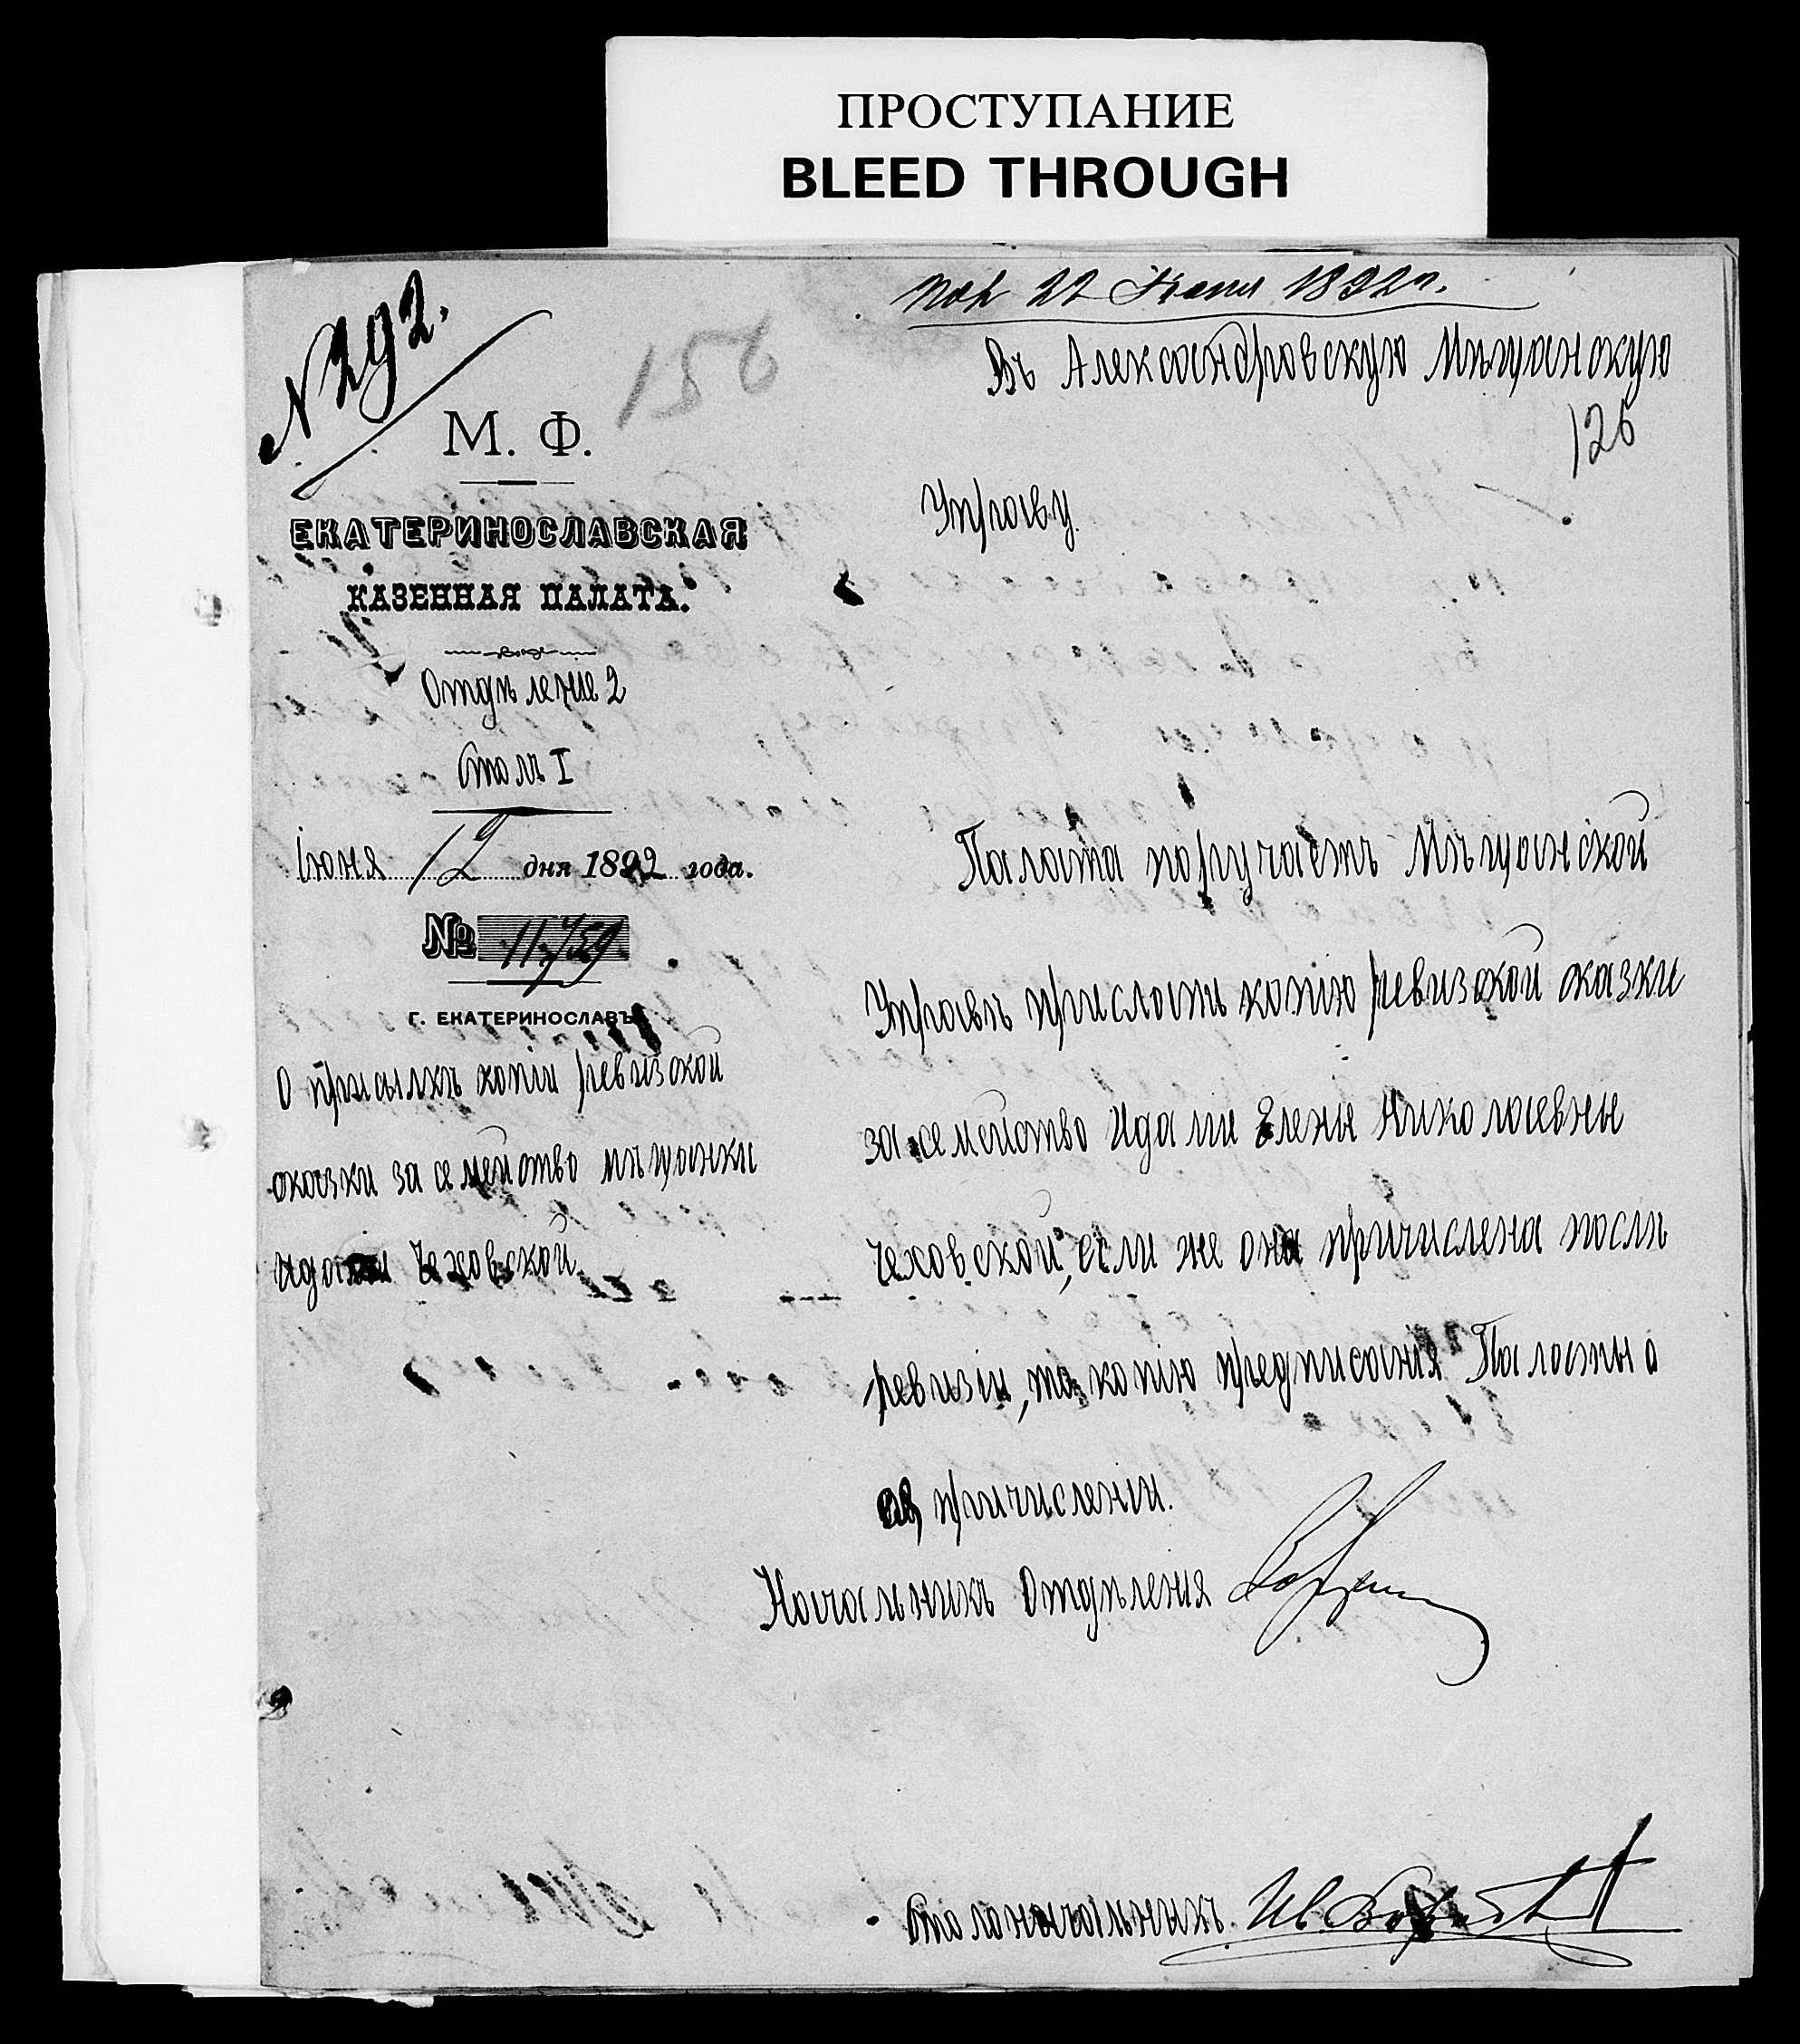 ПРОСТУПАНИЕ
BLEED THROUGH
№ 292.
156
22 Іюня 1892 г.
Въ Александровскую Мѣщанскую
126
Управу.
М. Ф.
ЕКАТЕРИНОСЛАВСКАЯ
КАЗЕННАЯ ПАЛАТА.
Отдѣленіе 2
Столъ I
Іюня 12 дня 1892 года.
№ 11759
Г. ЕКАТЕРИНОСЛАВЪ
О присылкѣ копіи ревизской
сказки за семейство мѣщанки
Идаліи Чеховской.
Палата поручаетъ Мѣщанской
Управѣ прислать копію ревизской сказки
за семейство Идаліи Елены Николаевны
Чеховской, если же она причислена послѣ
ревизіи, то копію предписанія Палаты о
ея причисленіи.
Начальникъ Отдѣленія
Столоначальникъ